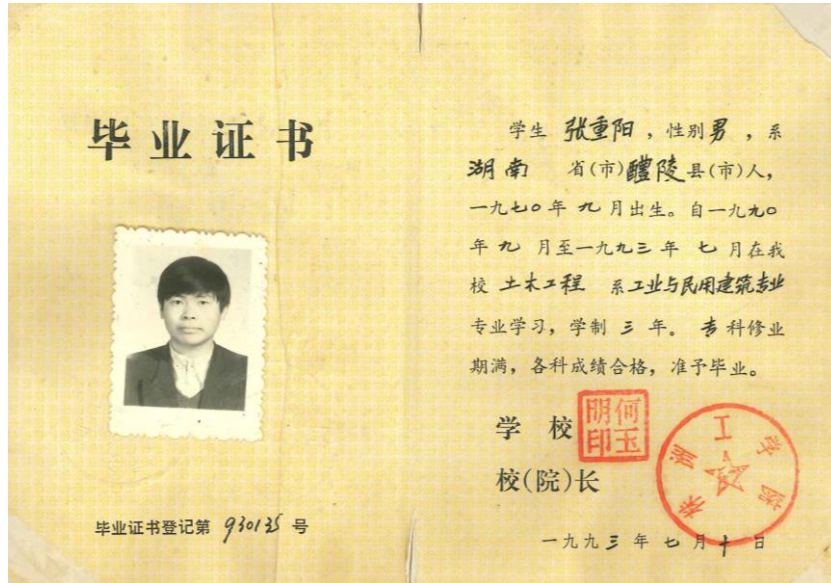 毕业证书
毕业证书登记第 930135 号
学生 张重阳，性别男，系
湖南 省(市)醴陵县(市)人，
一九七〇年 九 月出生。自一九九〇
年 九 月至一九九三年 七 月在我
校 土木工程 系工业与民用建筑专业
专业学习，学制 三 年。专科修业
期满，各科成绩合格，准予毕业。
学校
校(院)长
何玉明印
工学院
一九九三年七月十日